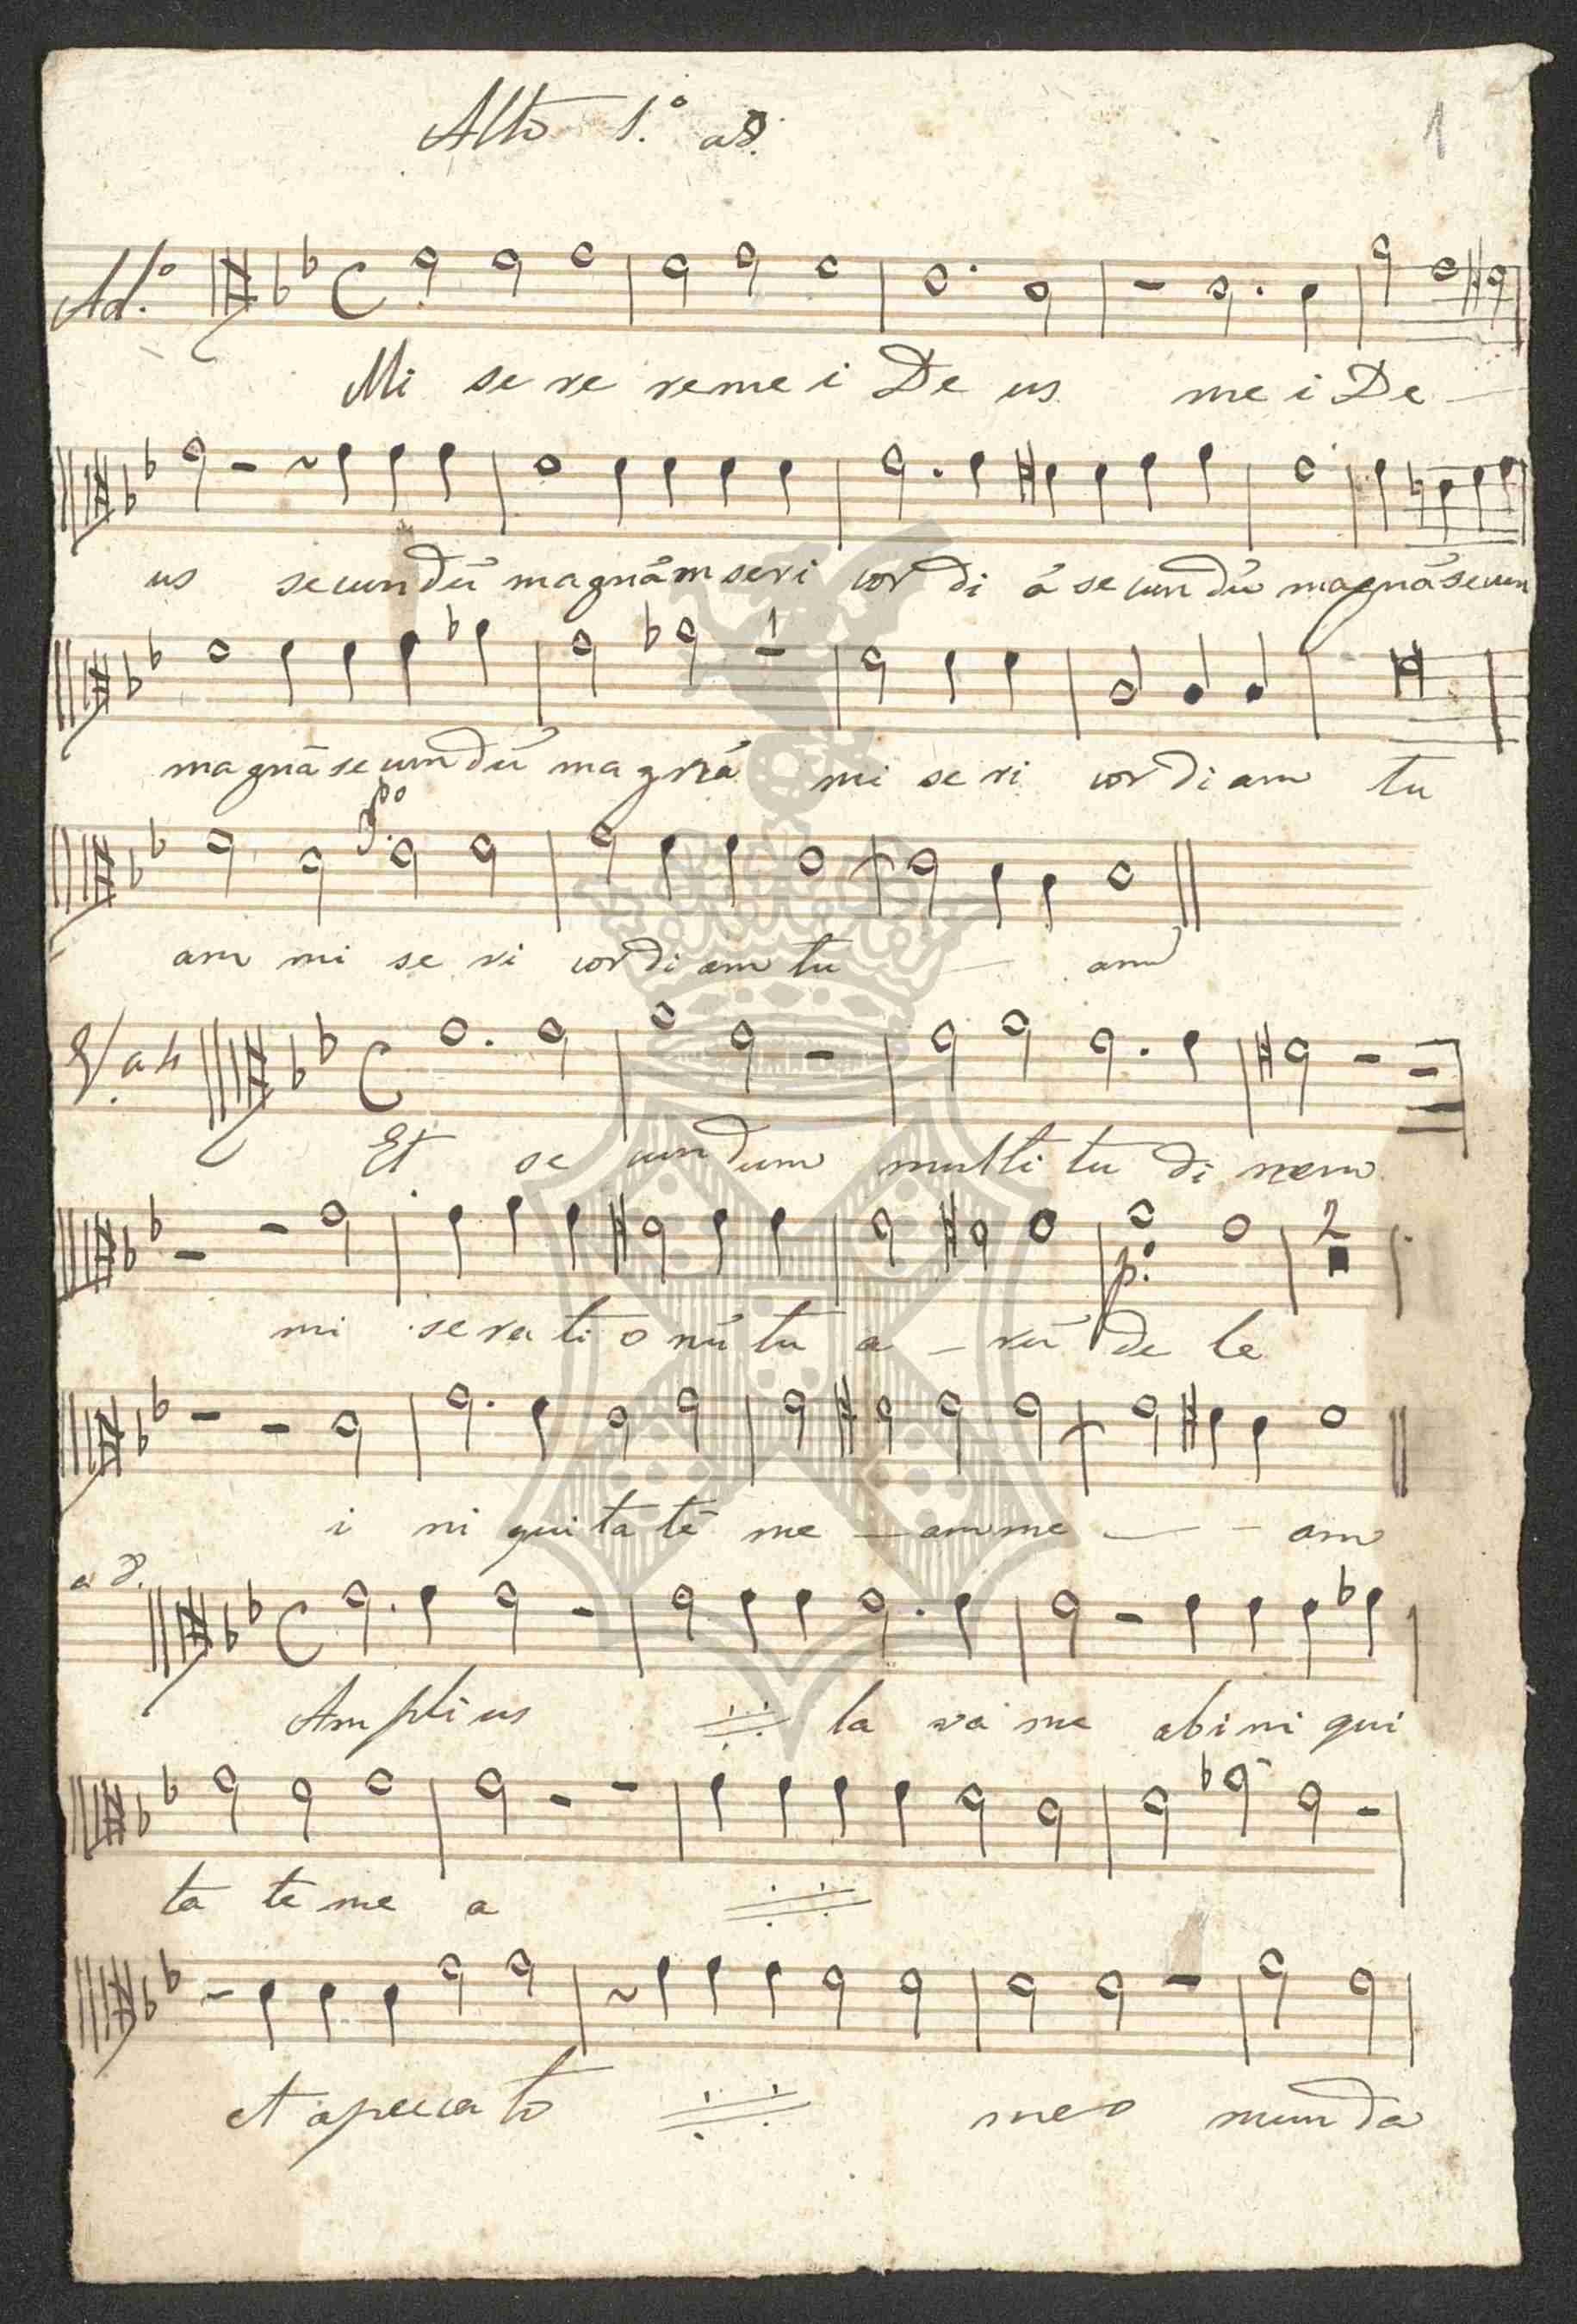 Alto 1.º a 8.
1
Ad.º
Mi se re re me i De us me i De
us secundũ magnãm seri cor di ã se cun dũ magnã secun
magnã se cun dũ magnã mi se ri cor di am tu
pº
am mi se ri cor di am tu am
V. a 4
Et se cun dum multi tu di nem
p.
2
mi se ra ti o nũ tu a rũ de le
i ni qui ta tẽ me am me am
a 8.
Am pli us la va me ab i ni qui
ta te me a
et a pecca to me o mun da